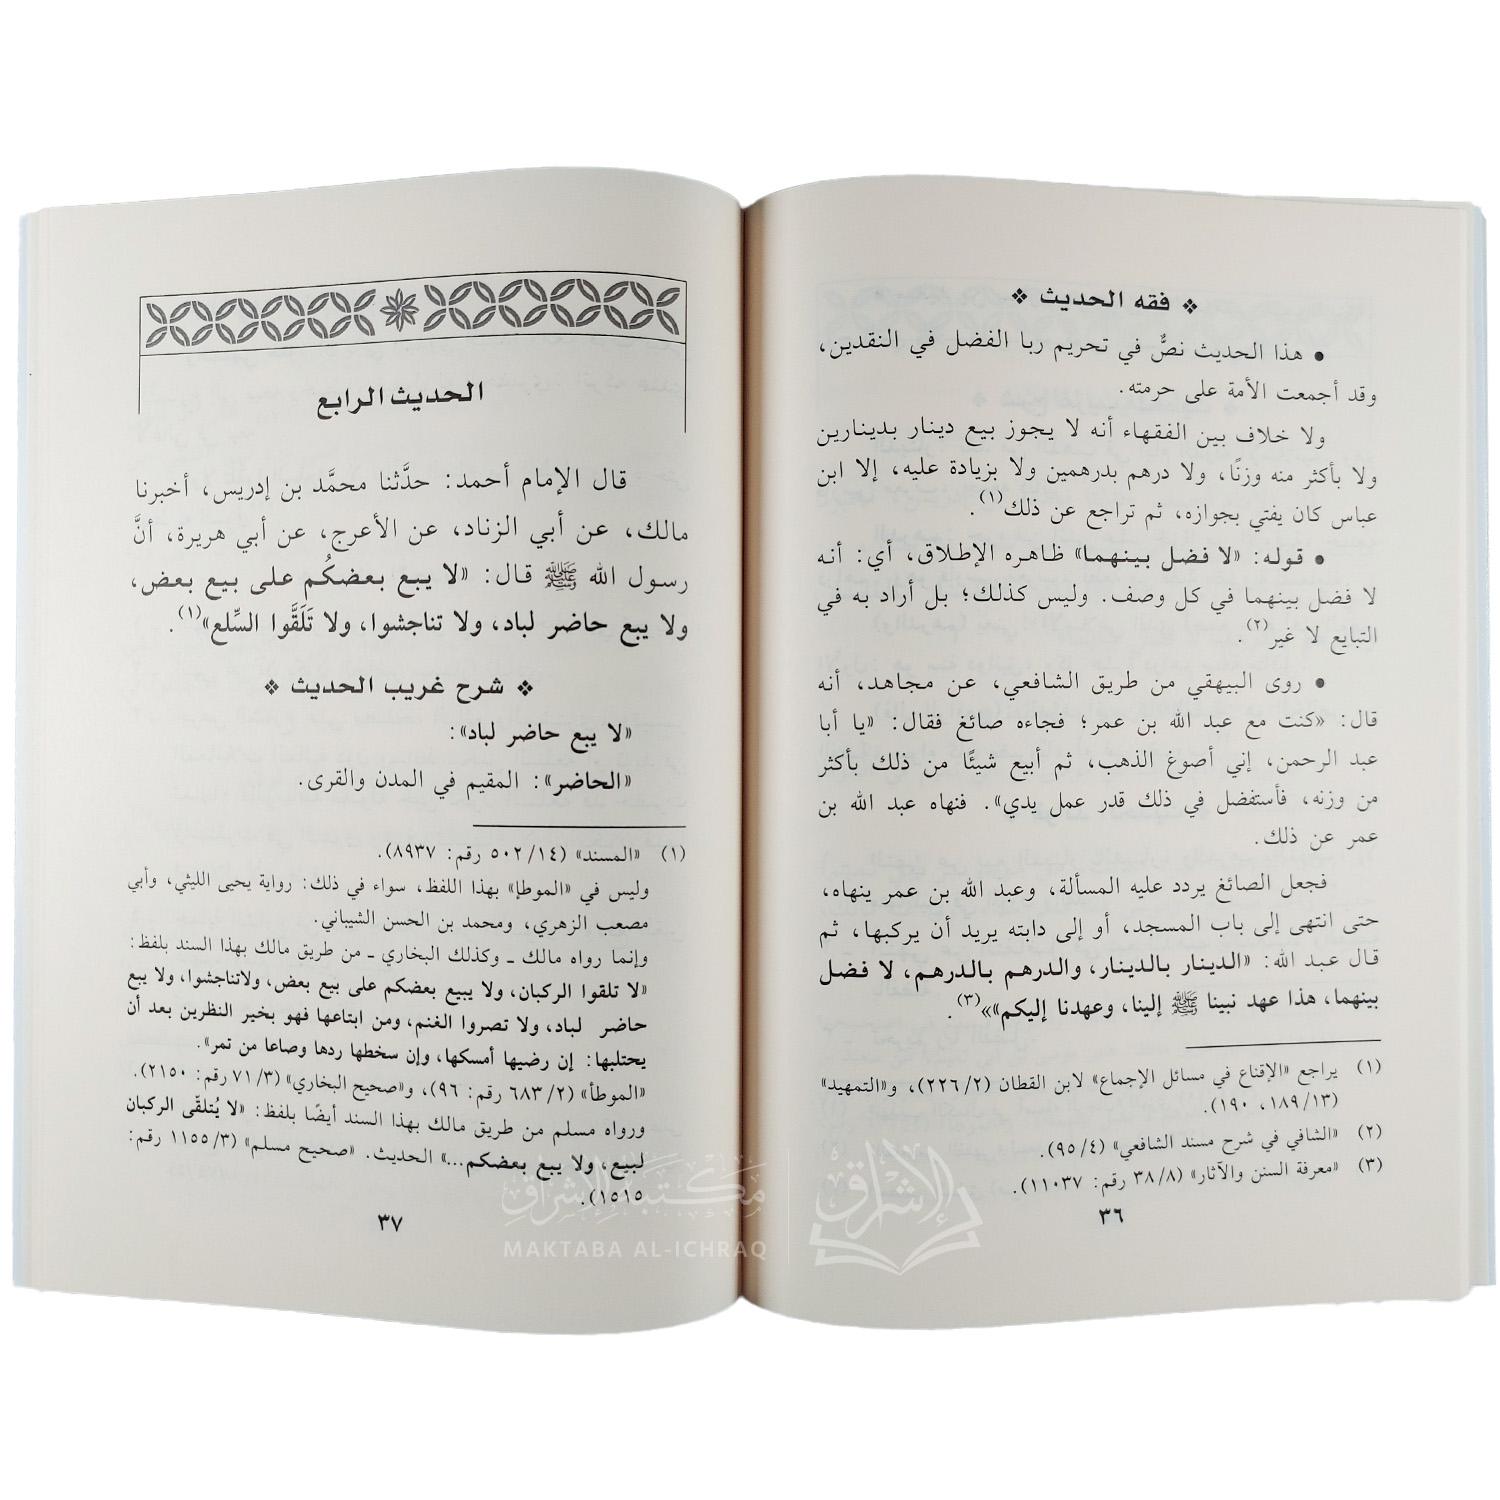 ❖ فقه الحديث ❖
• هذا الحديث نصٌّ في تحريم ربا الفضل في النقدين،
وقد أجمعت الأمة على حرمته.
ولا خلاف بين الفقهاء أنه لا يجوز بيع دينار بدينارين
ولا بأكثر منه وزنًا، ولا درهم بدرهمين ولا بزيادة عليه، إلا ابن
عباس كان يفتي بجوازه، ثم تراجع عن ذلك(١).
• قوله: «لا فضل بينهما» ظاهره الإطلاق، أي: أنه
لا فضل بينهما في كل وصف. وليس كذلك؛ بل أراد به في
التبايع لا غير(٢).
• روى البيهقي من طريق الشافعي، عن مجاهد، أنه
قال: «كنت مع عبد الله بن عمر؛ فجاءه صائغ فقال: «يا أبا
عبد الرحمن، إني أصوغ الذهب، ثم أبيع شيئًا من ذلك بأكثر
من وزنه، فأستفضل في ذلك قدر عمل يدي». فنهاه عبد الله بن
عمر عن ذلك.
فجعل الصائغ يردد عليه المسألة، وعبد الله بن عمر ينهاه،
حتى انتهى إلى باب المسجد، أو إلى دابته يريد أن يركبها، ثم
قال عبد الله: «الدينار بالدينار، والدرهم بالدرهم، لا فضل
بينهما، هذا عهد نبينا ﷺ إلينا، وعهدنا إليكم»»(٣).
(١) يراجع «الإقناع في مسائل الإجماع» لابن القطان (٢٢٦/٢)، و«التمهيد»
(١٨٩/١٣، ١٩٠).
(٢) «الشافي في شرح مسند الشافعي» (٩٥/٤).
(٣) «معرفة السنن والآثار» (٣٨/٨ رقم: ١١٠٣٧).
٣٦
الحديث الرابع
قال الإمام أحمد: حدَّثنا محمَّد بن إدريس، أخبرنا
مالك، عن أبي الزناد، عن الأعرج، عن أبي هريرة، أنَّ
رسول الله ﷺ قال: «لا يبع بعضكُم على بيع بعض،
ولا يبع حاضر لباد، ولا تناجشوا، ولا تَلَقَّوا السِّلع»(١).
❖ شرح غريب الحديث ❖
«لا يبع حاضر لباد»:
«الحاضر»: المقيم في المدن والقرى.
(١) «المسند» (٥٠٢/١٤ رقم: ٨٩٣٧).
وليس في «الموطإ» بهذا اللفظ، سواء في ذلك: رواية يحيى الليثي، وأبي
مصعب الزهري، ومحمد بن الحسن الشيباني.
وإنما رواه مالك ـ وكذلك البخاري ـ من طريق مالك بهذا السند بلفظ:
«لا تلقوا الركبان، ولا يبيع بعضكم على بيع بعض، ولاتناجشوا، ولا يبع
حاضر لباد، ولا تصروا الغنم، ومن ابتاعها فهو بخير النظرين بعد أن
يحتلبها: إن رضيها أمسكها، وإن سخطها ردها وصاعا من تمر».
«الموطأ» (٦٨٣/٢ رقم: ٩٦)، و«صحيح البخاري» (٧١/٣ رقم: ٢١٥٠).
ورواه مسلم من طريق مالك بهذا السند أيضًا بلفظ: «لا يُتلقى الركبان
لبيع، ولا يبع بعضكم...» الحديث. «صحيح مسلم» (١١٥٥/٣ رقم:
١٥١٥).
٣٧
مكتبة الإشراق
MAKTABA AL-ICHRAQ
الإشراق